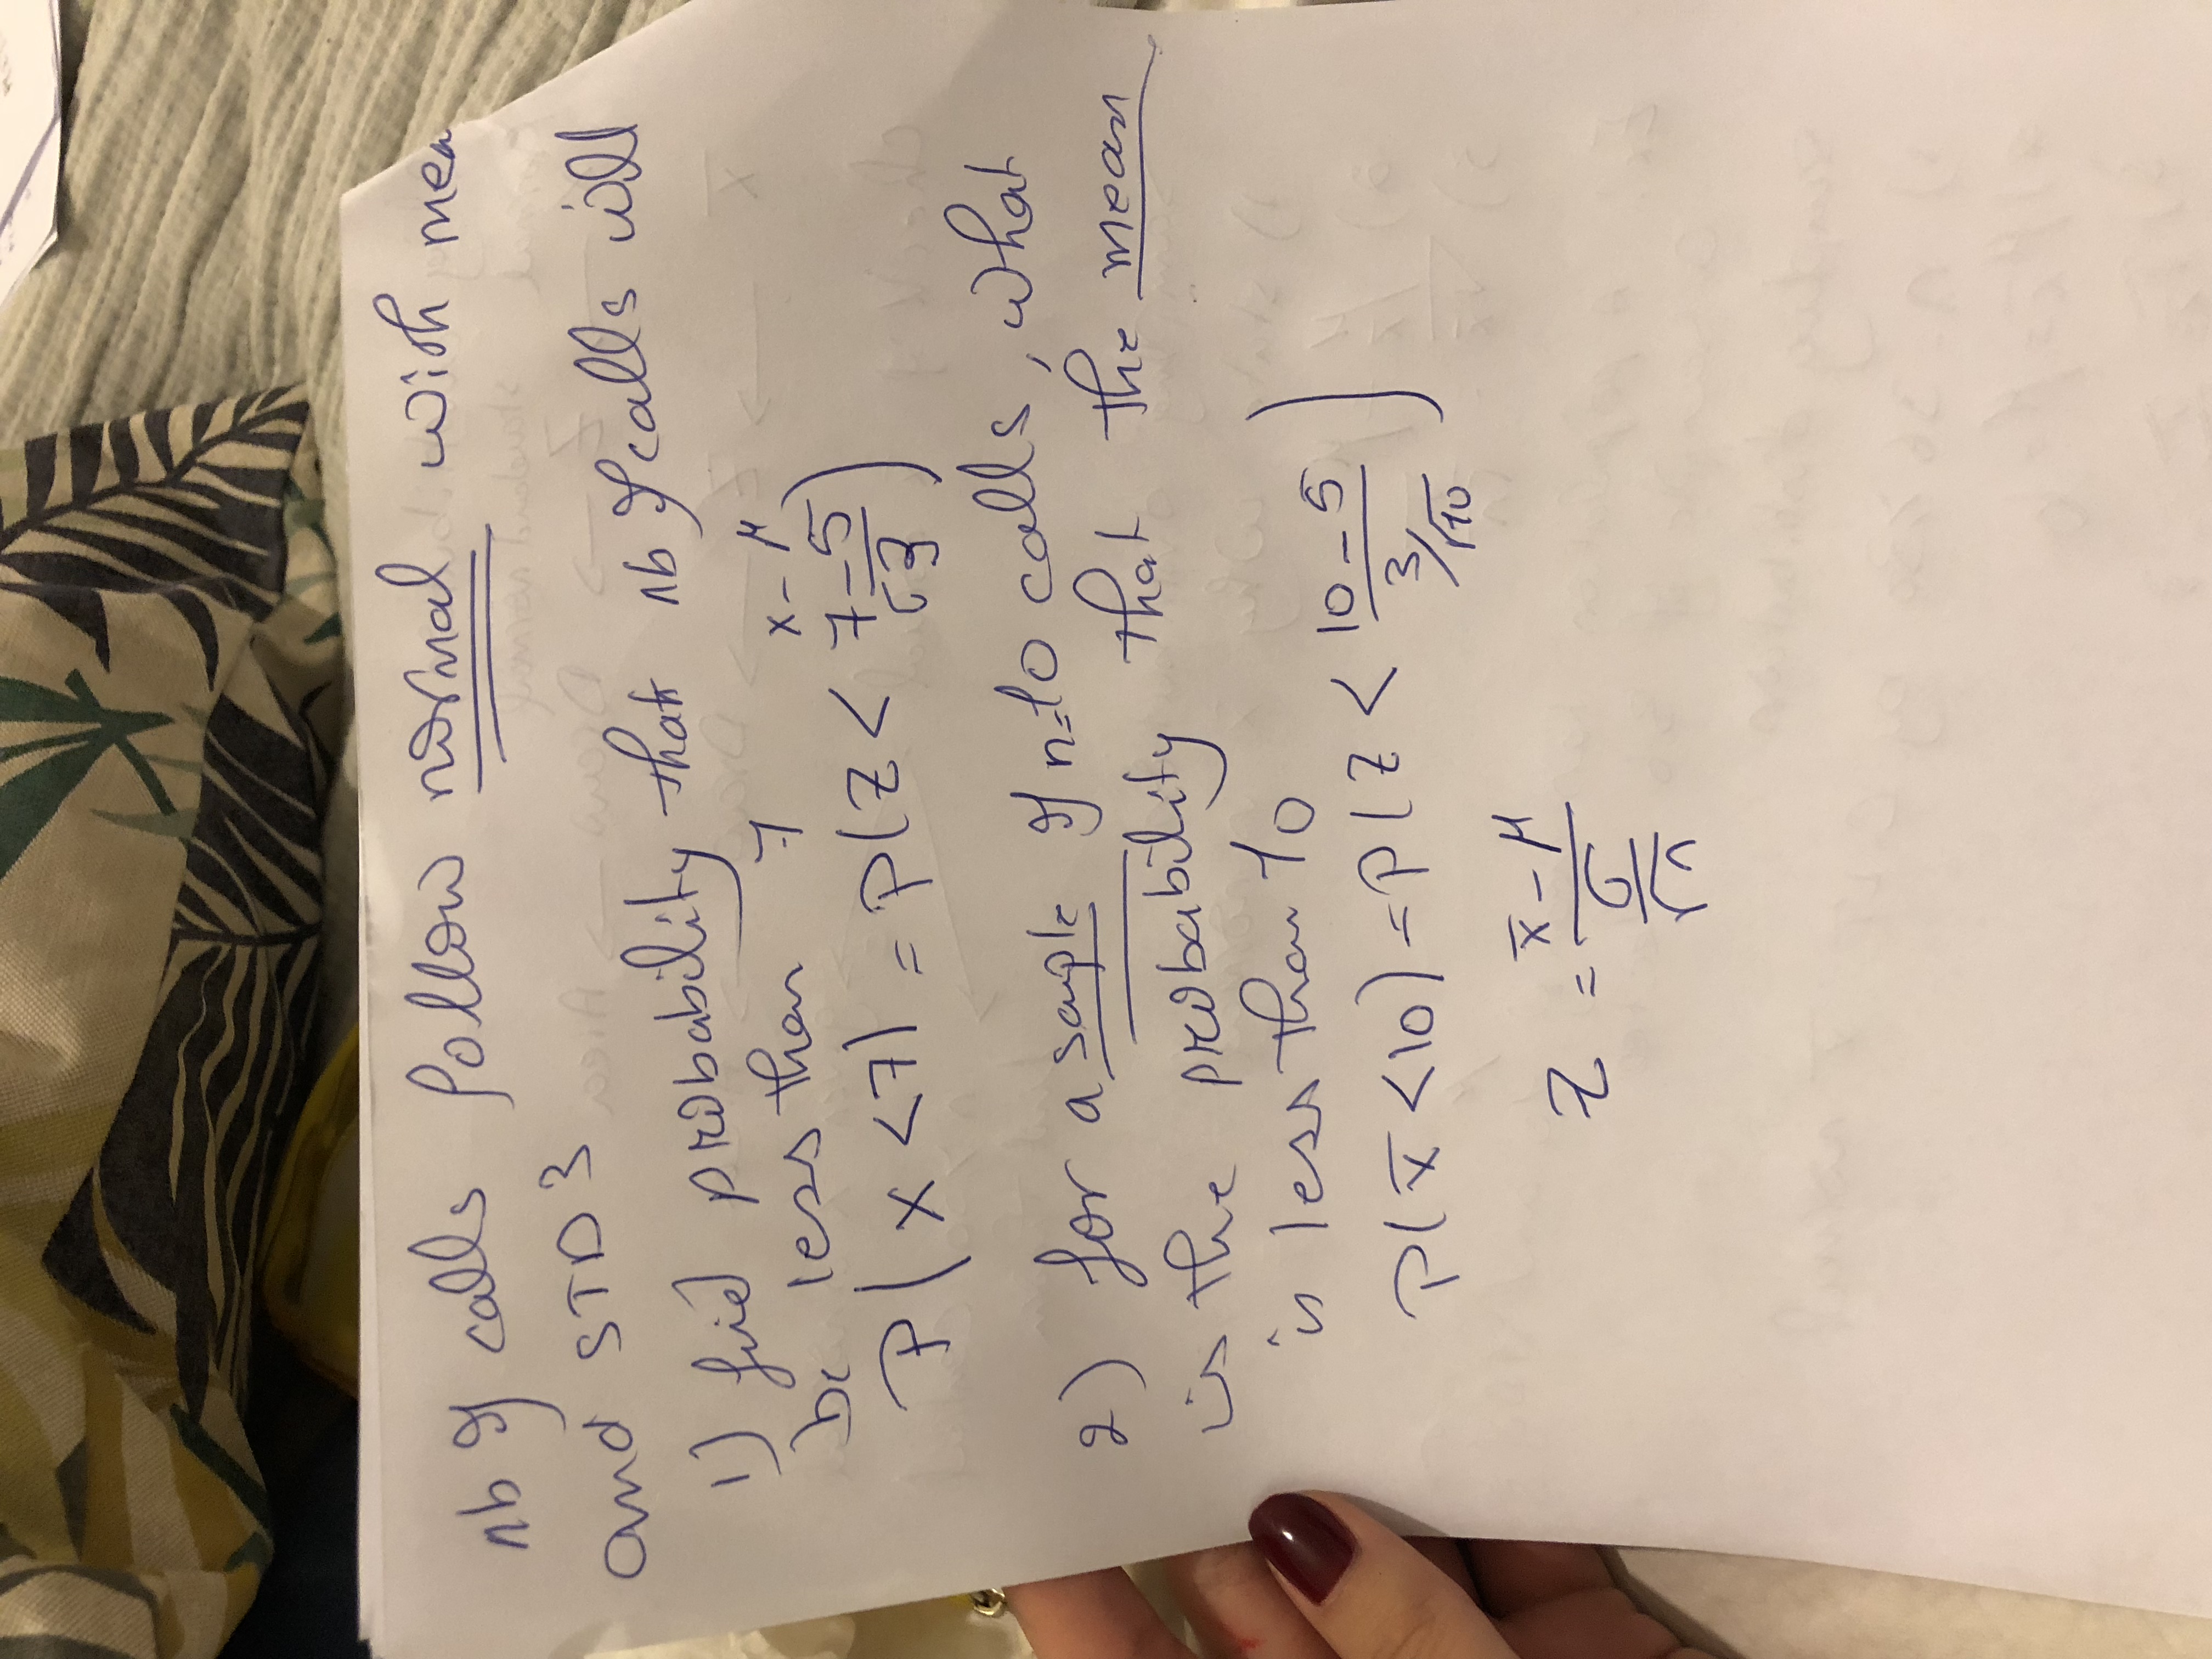 nb of calls follow normal with mea
and STD 3
1) find probability that nb of calls will
be less than 7
x - μ
P(x < 7) = P(Z < 7-5/3)
2) for a sample of n=10 calls, what
is the probability that the mean
is less than 10
P(x̄ < 10) = P(Z < 10-5 / 3/√10)
Z = x̄ - μ / σ/√n